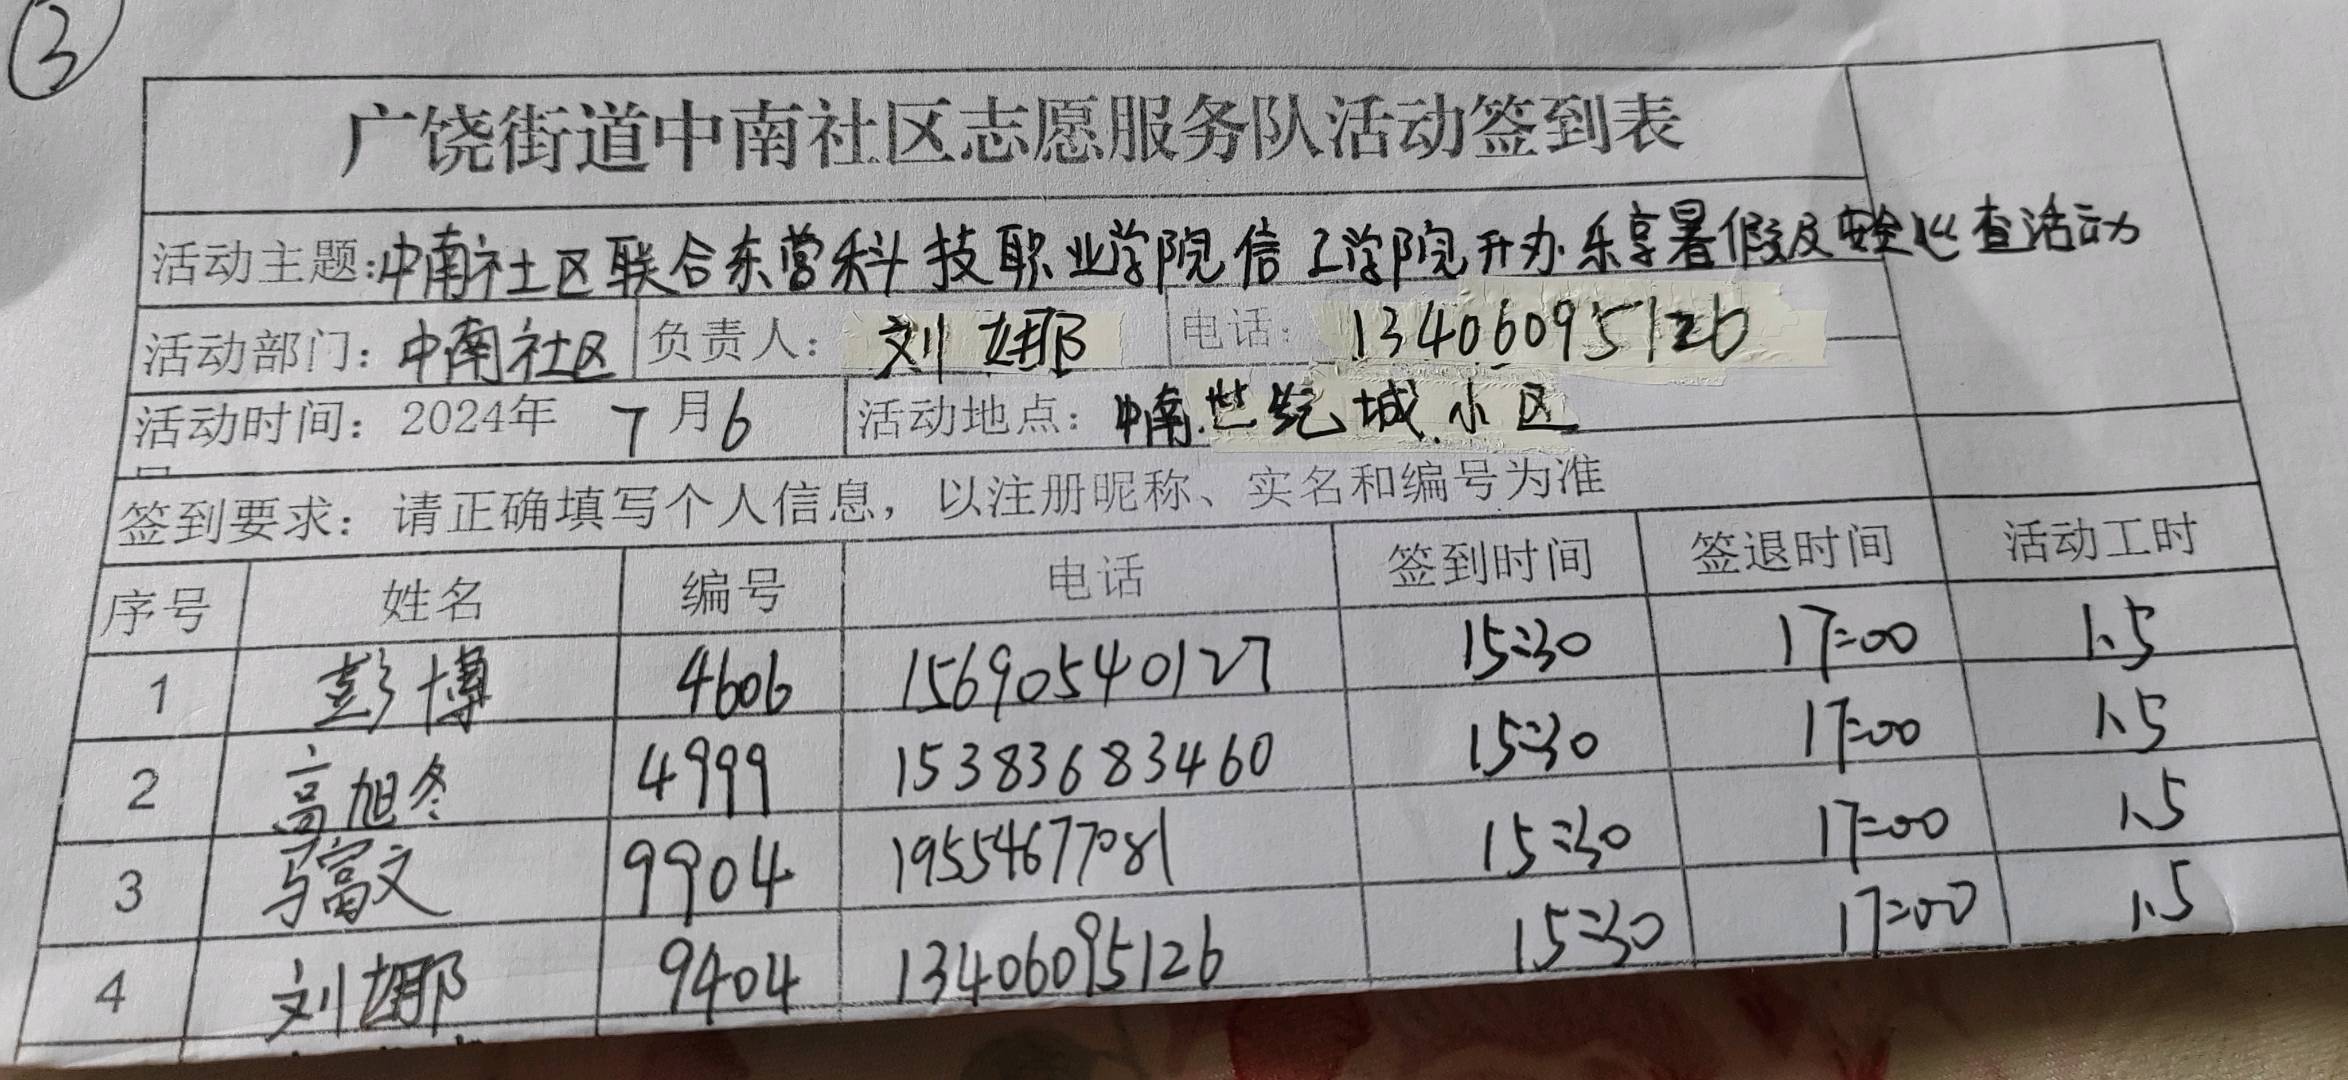 ③
广饶街道中南社区志愿服务队活动签到表
活动主题:中南社区联合东营科技职业学院信工学院开办乐享暑假及安全巡查活动
活动部门：中南社区 负责人：刘娜 电话：13406095126
活动时间：2024年 7月6 活动地点：中南世纪城小区
签到要求：请正确填写个人信息，以注册昵称、实名和编号为准
序号 姓名 编号 电话 签到时间 签退时间 活动工时
1 彭博 4606 15690540127 15:30 17:00 1.5
2 高旭冬 4999 15383683460 15:30 17:00 1.5
3 马富文 9904 19554677081 15:30 17:00 1.5
4 刘娜 9404 13406095126 15:30 17:00 1.5